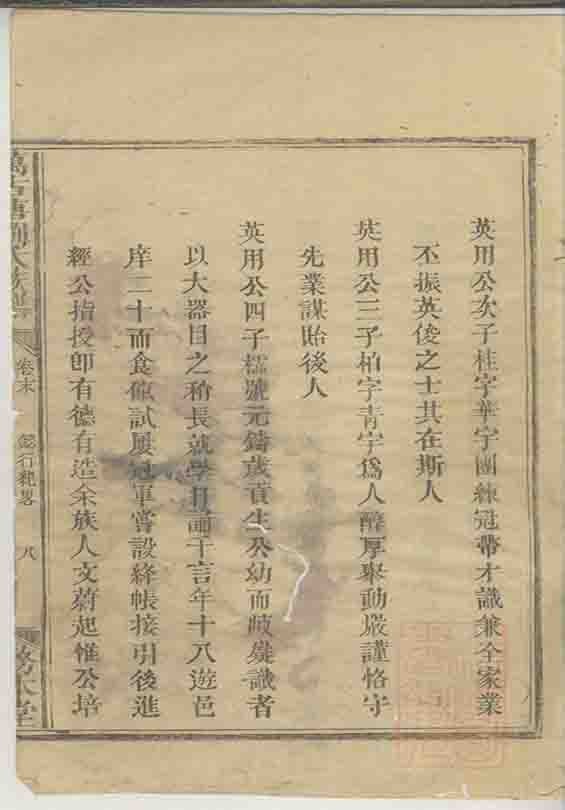 英用公次子桂字華宇團練冠帶才識兼全家業
不振英俊之士其在斯人
英用公三子柏字青宇爲人醇厚舉動嚴謹恪守
先業謀貽後人
英用公四子檽號元鑄歲貢生公幼而岐嶷識者
以大器目之稍長就學日誦千言年十八遊邑
庠二十而食餼試屢冠軍嘗設絳帳接引後進
經公指授即有德有造余族人文蔚起惟公培
劉氏族譜
卷末
懿行槪畧
八
敦本堂